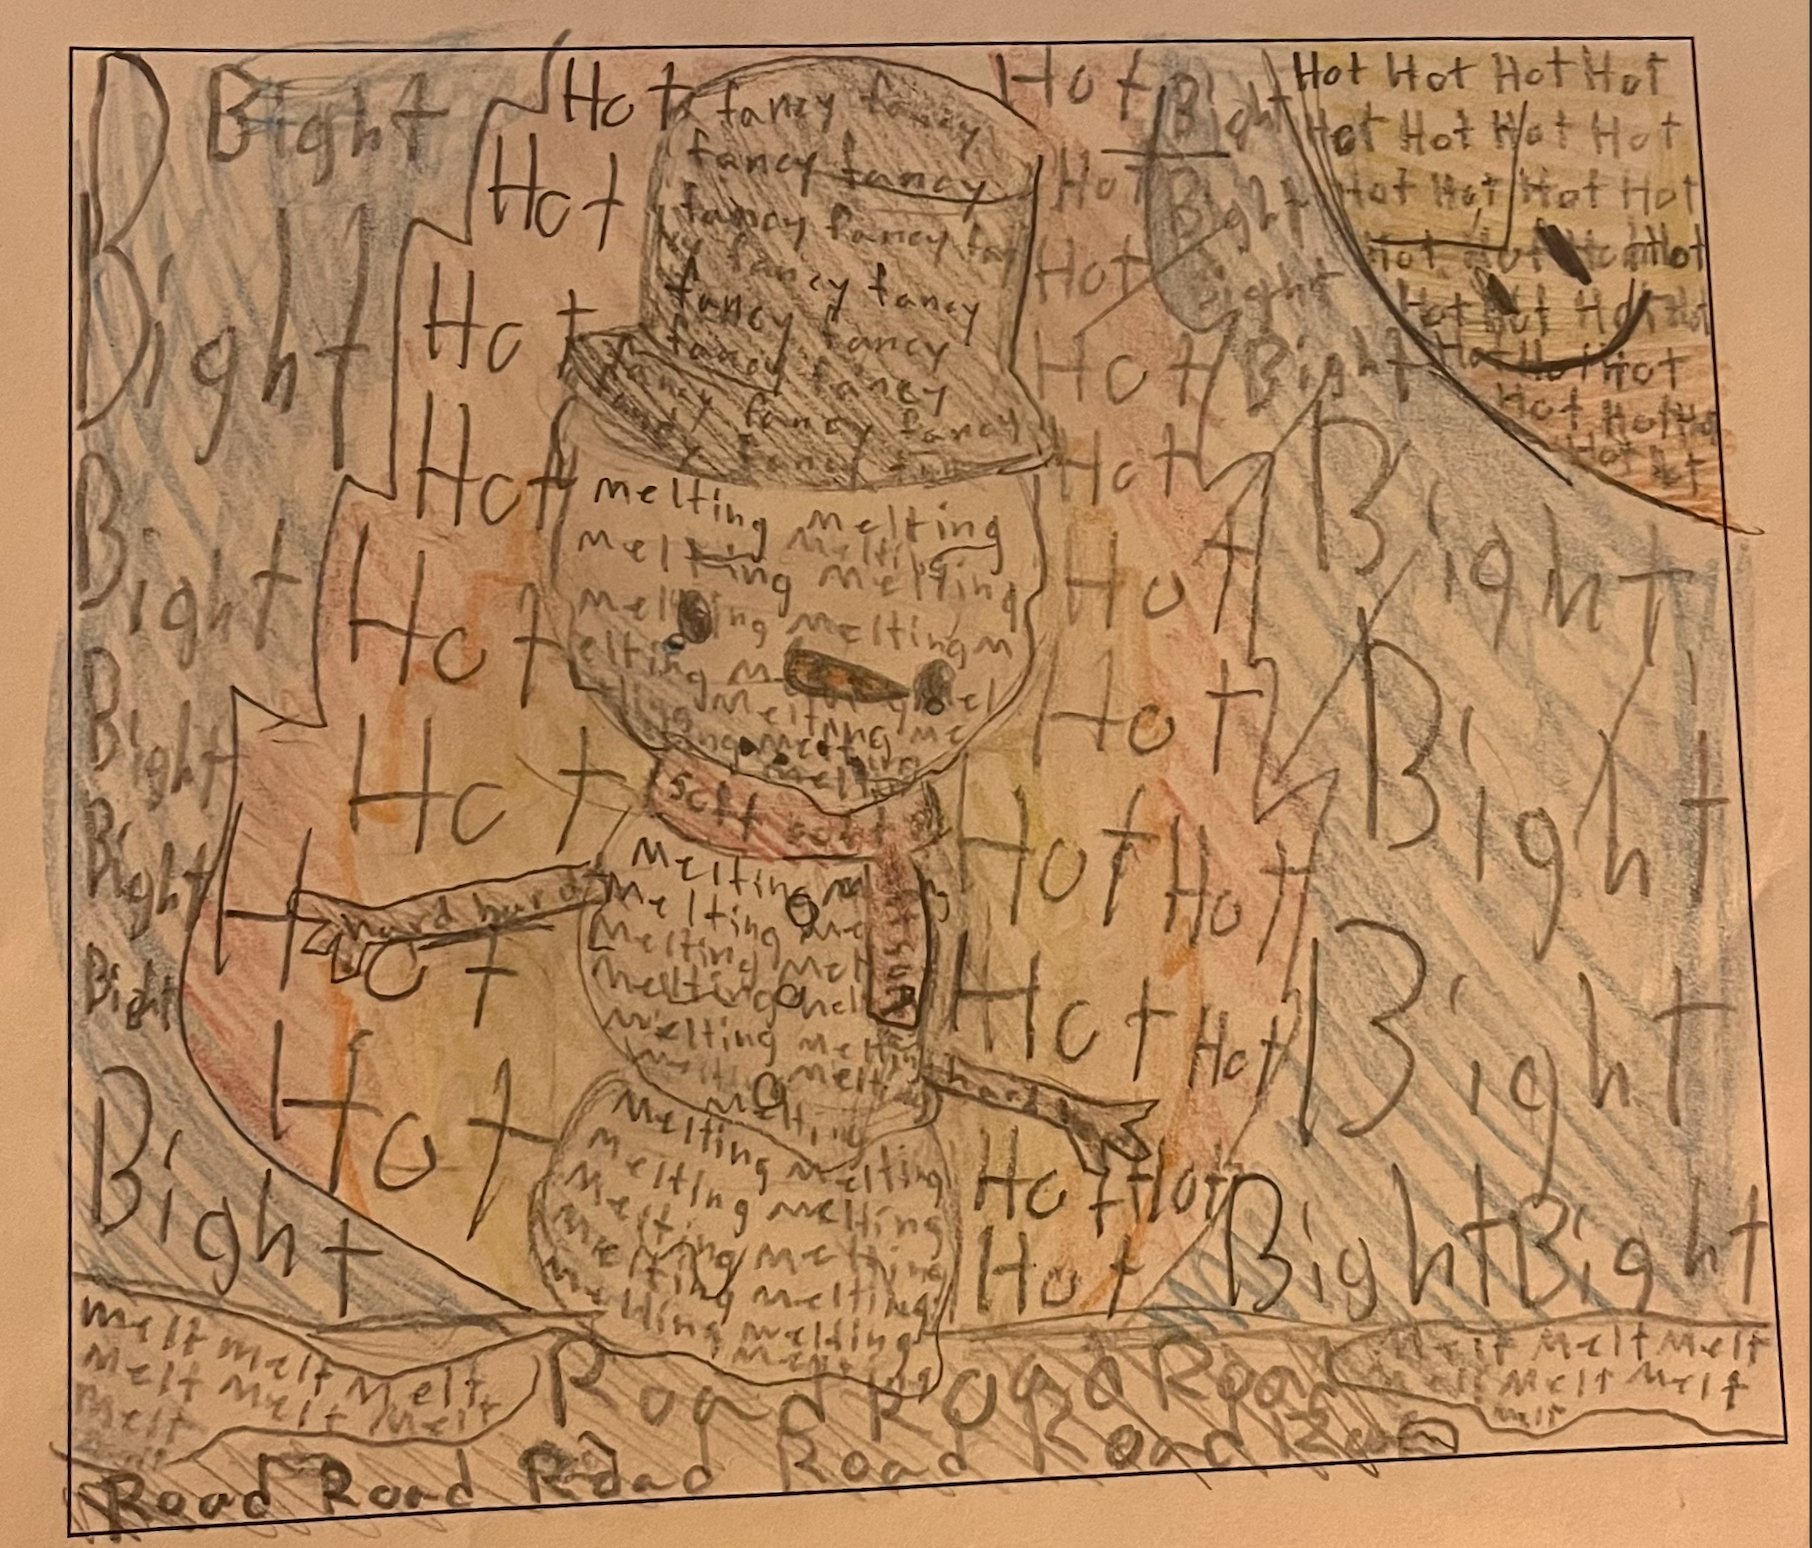 Bight
Hot
fancy fancy
Hot
Bight
Hot Hot Hot Hot
Hot
fancy fancy
Hot
Bight
Hot Hot Hot Hot
Hot Hot Hot Hot
Bight
Hot
fancy fancy
Hot
Bight
Hot Hot
fancy fancy
fancy fancy
Hot
Bight
Hot Hot
Hot
fancy fancy
fancy fancy
Hot
Bight
Hot
Bight
Hot
melting melting
melting melting
Hot
Bight
Bight
Hot
melting melting
Hot
Bight
Bight
Hot
soft soft
Hot Hot
Bight
Bight
Hot
hard hard
melting
melting me
melting mel
melting mel
melting melting
Hot Hot
Bight
Bight
Hot
melting
hard
melting melting
melting melting
melting melting
melting melting
Hot Hot
Hot
Bight Bight
melt melt
melt melt melt
melt melt
melt
Road Road Road
melt melt melt
melt melt melt
melt
Road Road Road Road Road